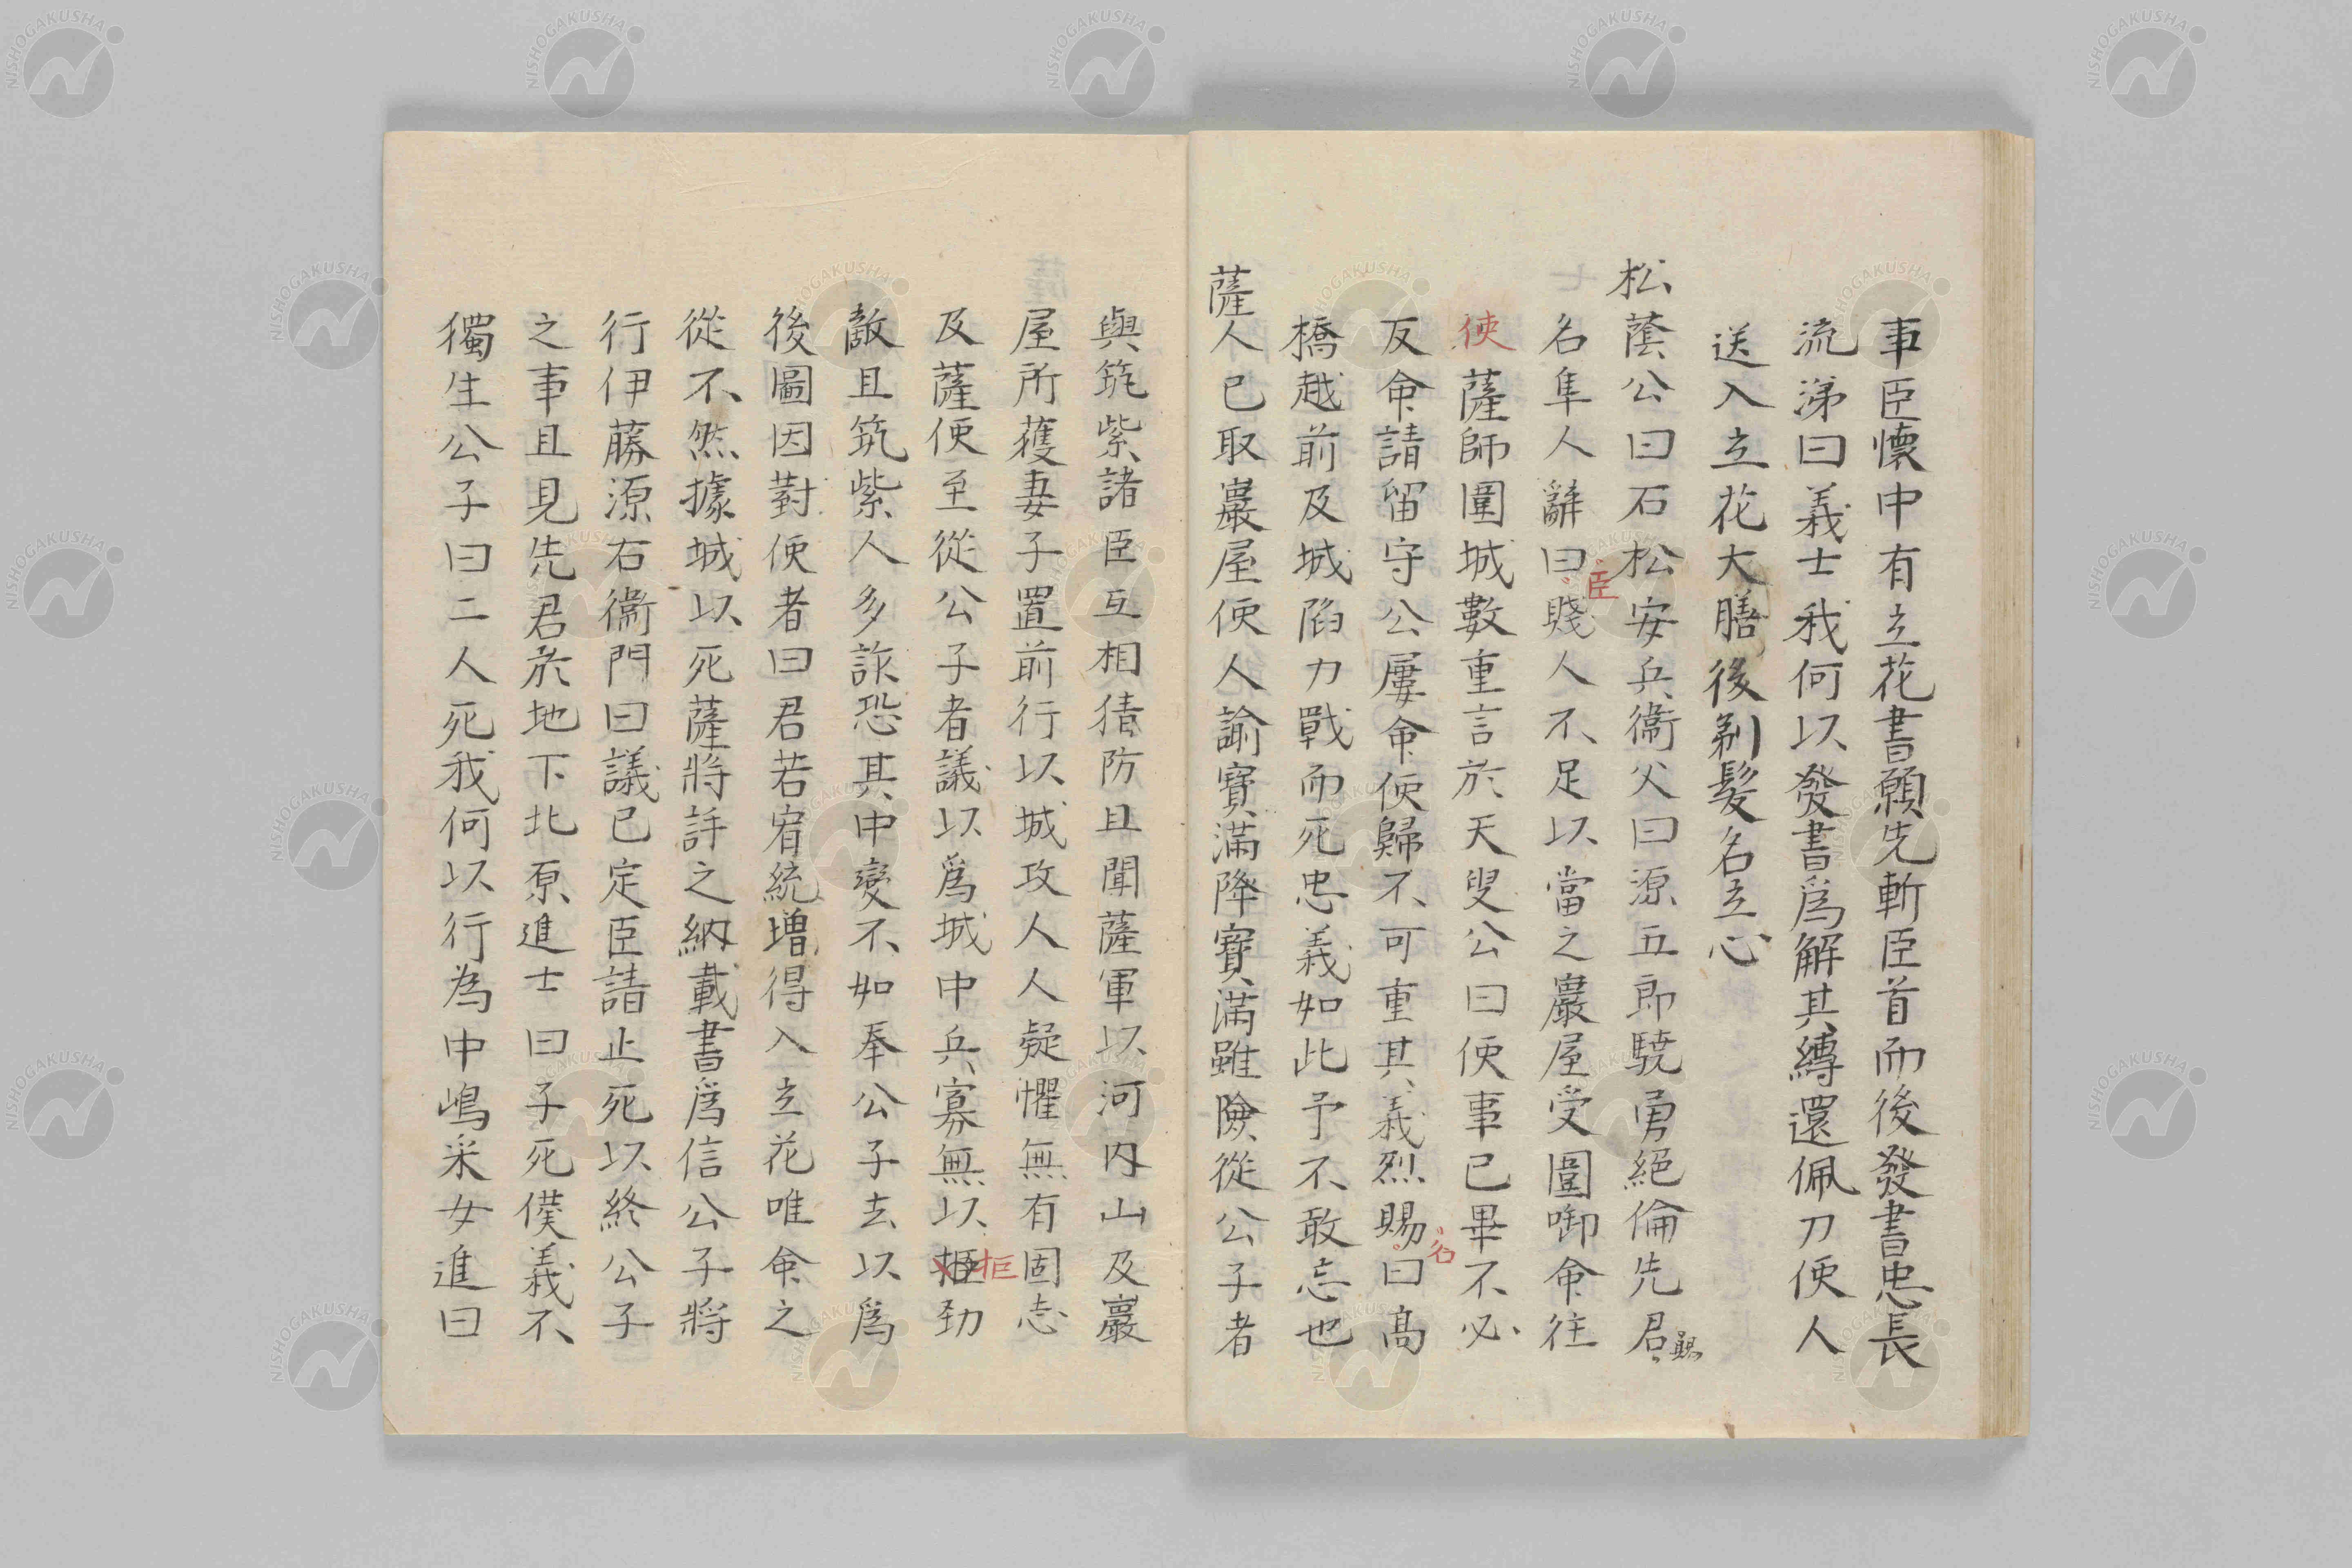 事臣懷中有立花書願先斬臣首而後發書忠長
流涕曰義士我何以發書爲解其縛還佩刀使人
送入立花大膳後剃髮名立心
松蔭公曰石松安兵衞父曰源五郎驍勇絕倫先君賜
名隼人辭曰臣賤人不足以當之巖屋受圍啣命往
使薩師圍城數重言於天叟公曰使事已畢不必
反命請留守公屢命使歸不可重其義烈賜名曰高
橋越前及城陷力戰而死忠義如此予不敢忘也
薩人已取巖屋使人諭寶滿降寶滿雖險從公子者
與筑紫諸臣互相猜防且聞薩軍以河内山及巖
屋所獲妻子置前行以城攻人人疑懼無有固志
及薩使至從公子者議以爲城中兵寡無以拒勁
敵且筑紫人多詐恐其中變不如奉公子去以爲
後圖因對使者曰君若宥統增得入立花唯命之
從不然據城以死薩將許之納載書爲信公子將
行伊藤源右衞門曰議已定臣請止死以終公子
之事且見先君於地下北原進士曰子死僕義不
獨生公子曰二人死我何以行為中嶋采女進曰
NISHOGAKUSHA